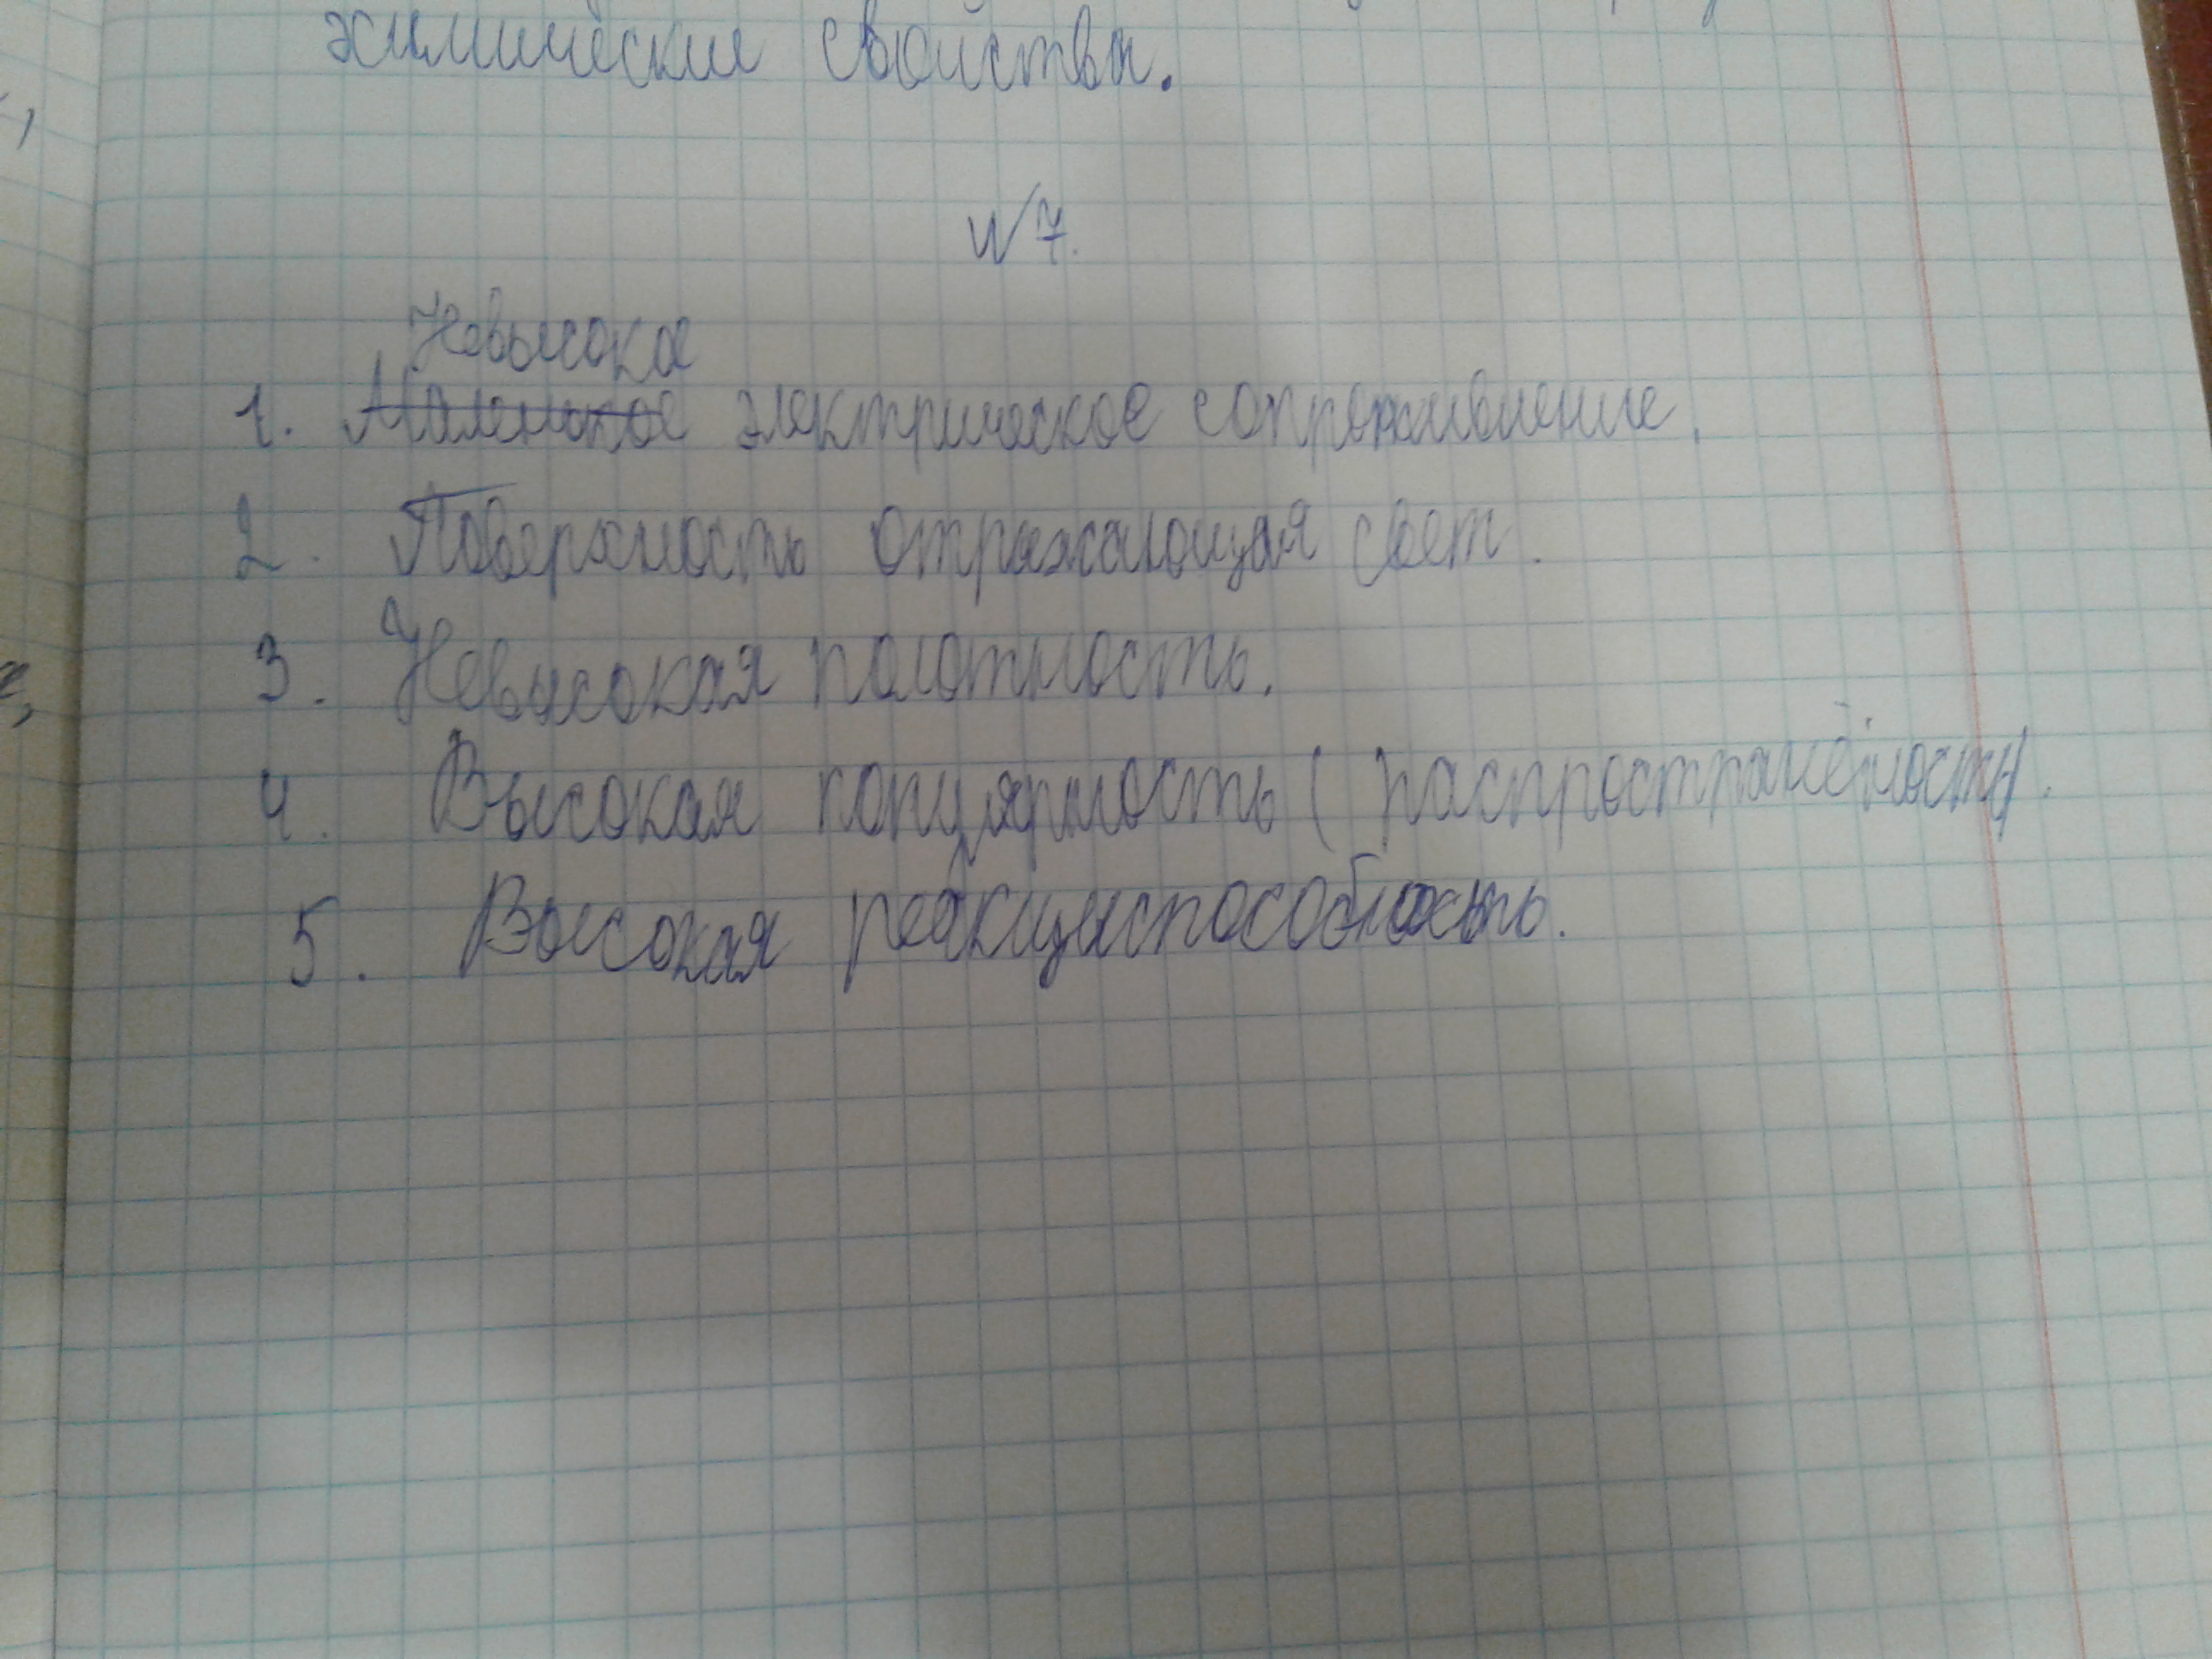 химические свойства.
№7.
Невысокое
1. Маленькое электрическое сопротивление.
2. Поверхность отражающая свет.
3. Невысокая плотность.
4. Высокая популярность (распространённость).
5. Высокая реакциспособность.